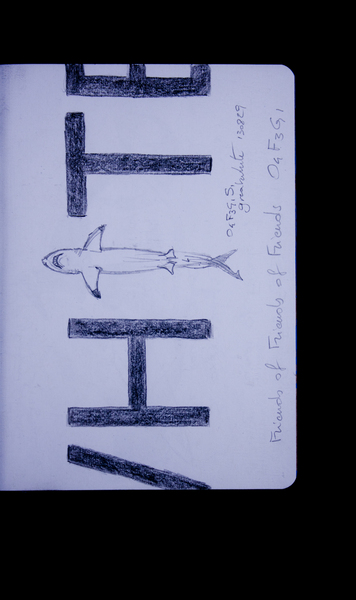 HTE
O4F3G1S1
greatwhite 130829
Friends of Friends of Friends O4F3G1